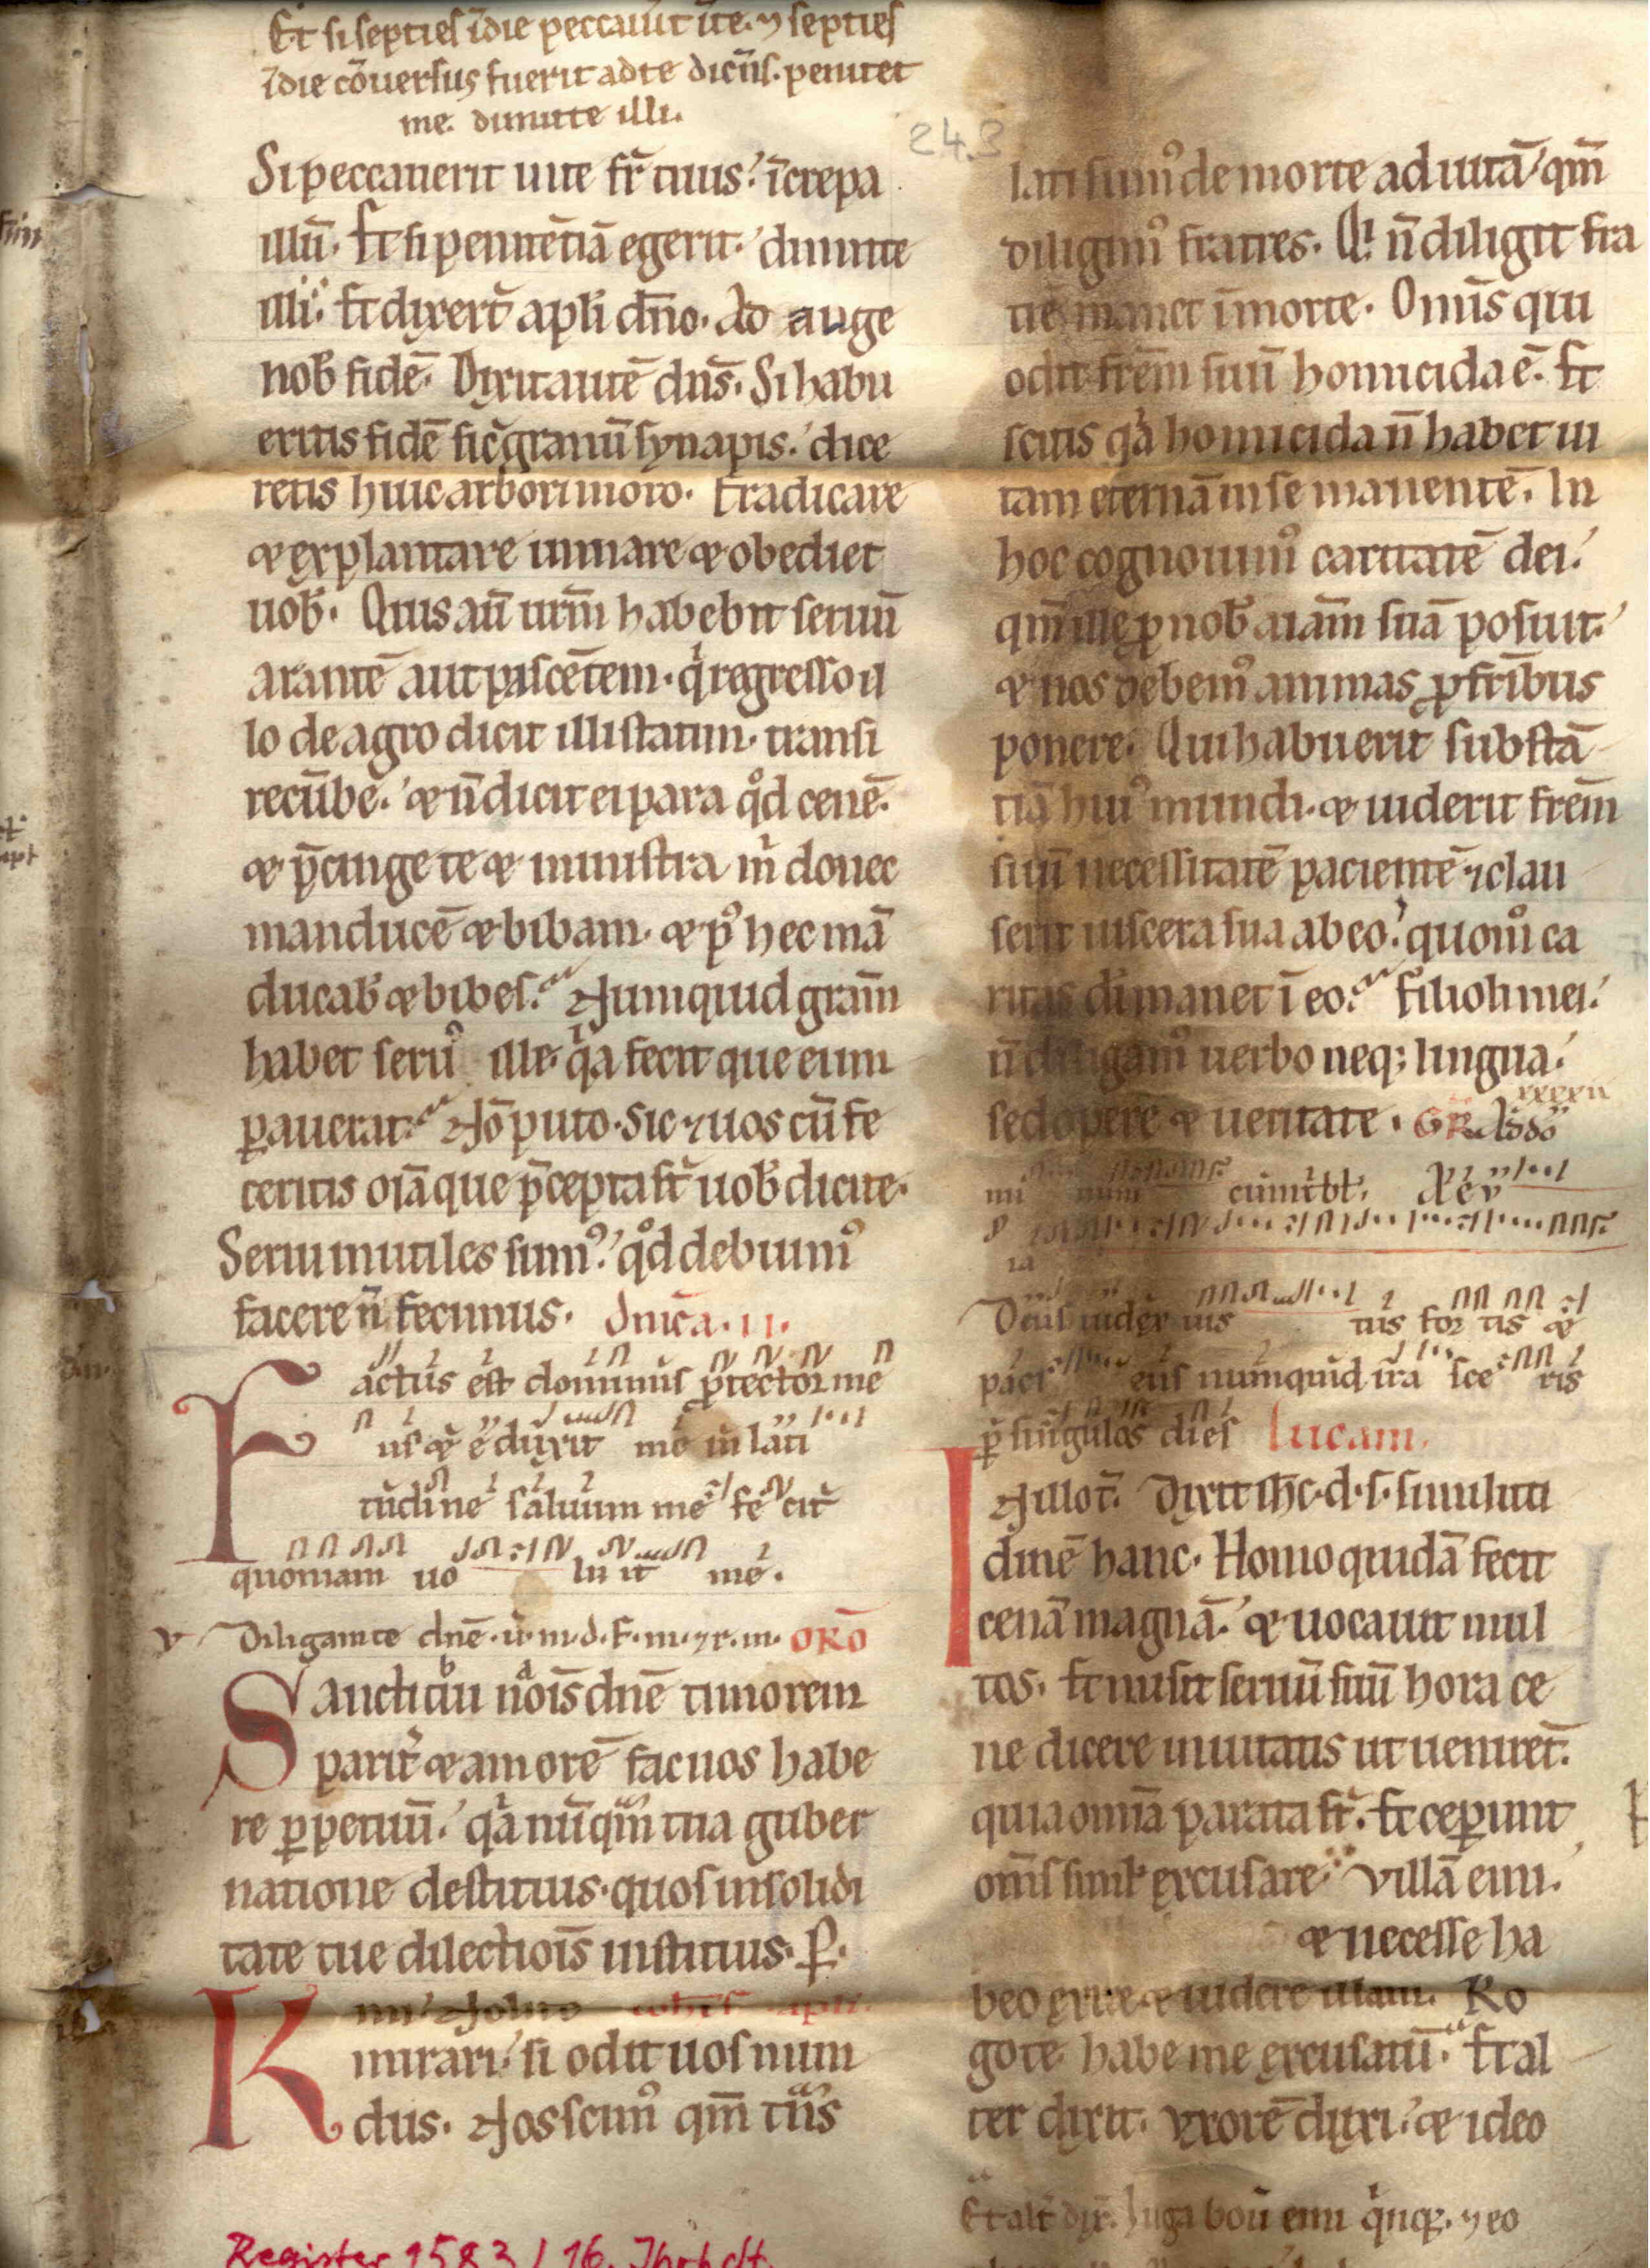 Et si septies ī die peccau̅it ī te. ⁊ septies
ī die cōuersus fuerit ad te dicēs. penitet
me. dimitte illi.
24.3
Si peccauerit ī te fr̄ tuus.' īcrepa
illū. Et si penitētiā egerit.' dimitte
illi. Et dixer̄t apl̄i dn̄o. Ad auge
nob̄ fidē. Dixit autē dn̄s. Si habu
eritis fidē sic̄ granū synapis.' dice
retis huic arbori moro. Eradicare
& explantare in mare & obediet
uob̄. Quis aū ur̄m habebit seruū
arantē aut pascētem. q̇ regresso il
lo de agro dicit illi statim. transi
recūbe.' & n̄ dicit ei para qd̊ cenē.
& p̄cinge te & ministra m̄ donec
manducē & bibam. & pꝰ hec mā
ducab̄ & bibes. Numquid grām
habet seruꝰ ille. qa fecit que ei im
ꝑauerat. Nō puto. Sic ⁊ uos cū fe
ceritis oīa que p̄cepta st̄ uob̄ dicite.
Serui inutiles sumꝰ.' qd̊ debuimꝰ
facere n̄ fecimus. Dnīca. II.
Factus est dominus ꝓtector me
us & eduxit me in lati
tudine saluum me fecit
quoniam uo luit me.
V Diligam te dn̄e. u. m. d. f. m. ⁊ r. m. ORŌ
Sancti tui nōis dn̄e timorem
parit̄ & amorē fac nos habe
re ꝑpetuū.' qa nūqm̄ tua guber
natione destituis. quos in solidi
tate tue dilectiōis instituis. P.
Kmi. Nolite ioh̄is apl̄i
mirari.' si odit uos mun
dus. Nos scimꝰ qm̄ trās
Register 1583 / 16. Jhrhdt.
lati sumꝰ de morte ad uitā.' qm̄
diligimꝰ fratres. Qi n̄ diligit fra
trē manet ī morte. Omīs qui
odit frēm suū homicida ē. Et
scitis qa homicida n̄ habet ui
tam eternā in se manentē. In
hoc cognouimꝰ caritatē dei.'
qm̄ ille ꝓ nob̄ aīam suā posuit.'
& nos debemꝰ animas ꝓ frībus
ponere. Qui habuerit substā
tiā huiꝰ mundi. & uiderit frēm
suū necessitatē pacientē ⁊ clau
serit uiscera sua ab eo.' quom̊ ca
ritas di̅ manet ī eo. Filioli mei.'
n̄ diligamꝰ uerbo neq; lingua.'
sed opere & ueritate. GR̄. Ad do
mi num cum t̄bl̄. Aeu
V
ia
Deus iudex ius tus for tis &
paci ens numquid ira sce tis
ꝑ singulos dies Lucam.
IN illo t̄. Dixit ih̄c. d. s. simiLiti
dinē hanc. Homo quidā fecit
cenā magnā.' & uocauit mul
tos. Et misit seruū suū hora ce
ne dicere inuitatis ut uenirēt.
quia omīa parata st̄. Et ceꝑunt
om̄s siml̄ excusare. Villā emi.
& necesse ha
beo exire & uidere illam. Ro
go te habe me excusatū. Et al
ter dixit. Uxorē duxi.' & ideo
Et alt̄ dix̄. Iuga boū emi q̇nqꝫ. ⁊ eo